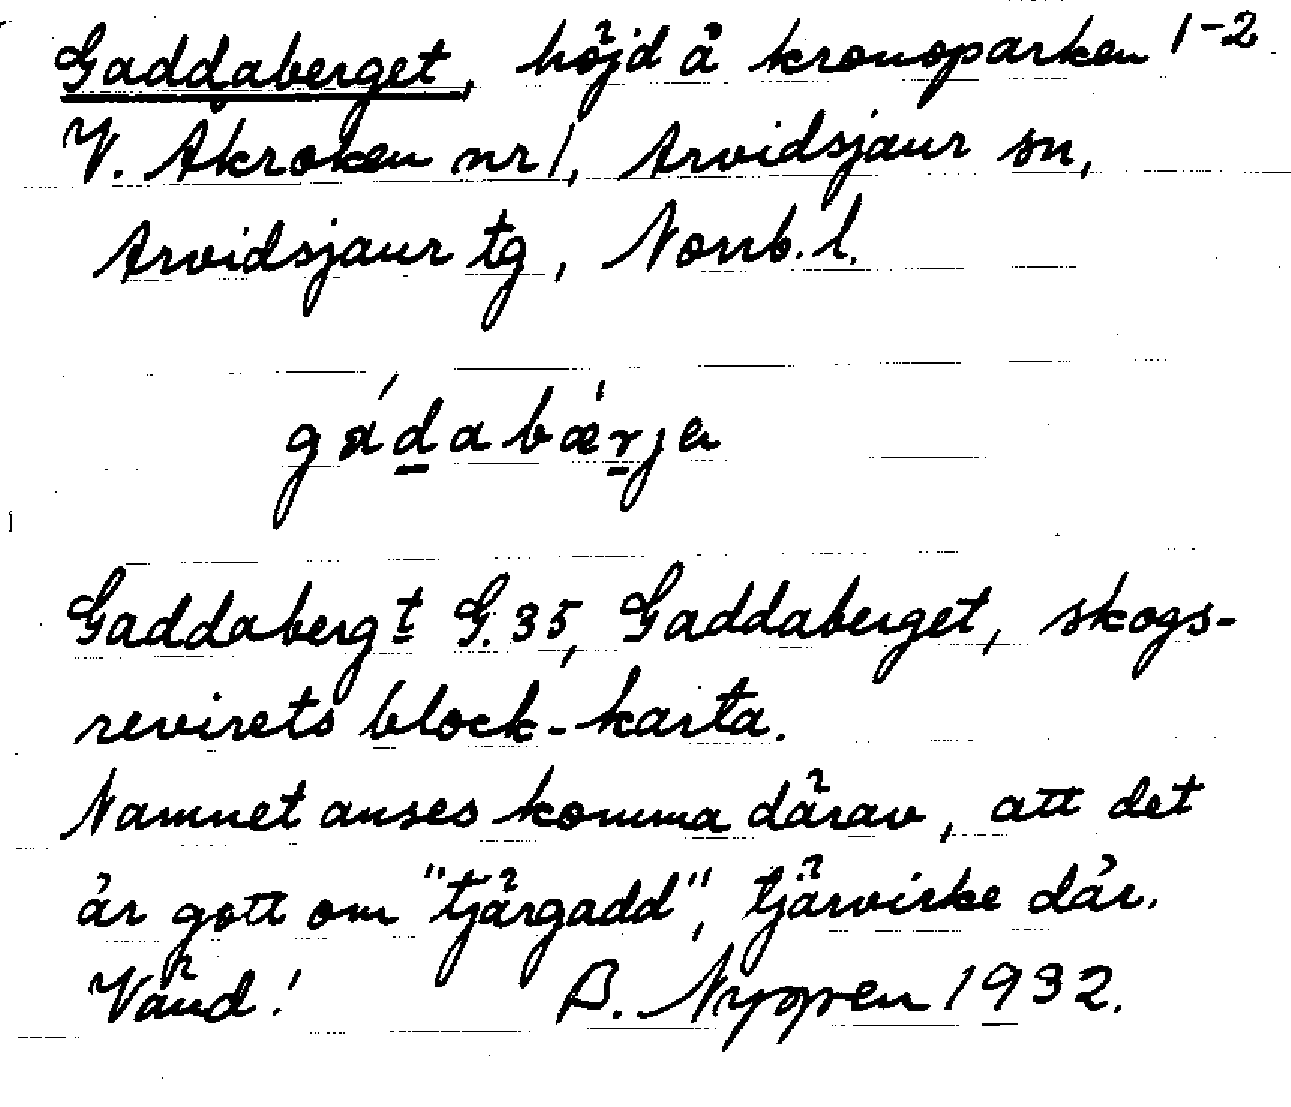 Gaddaberget, höjd å kronoparken 1-2
V. Åkroken nr 1, Arvidsjaur sn,
Arvidsjaur tg, Norrb. l.
gádabǽrja
Gaddabergt G. 35, Gaddaberget, skogs-
revirets block-karta.
Namnet anses komma därav, att det
är gott om "tjärgadd", tjärvirke där.
Vänd! B. Nygren 1932.